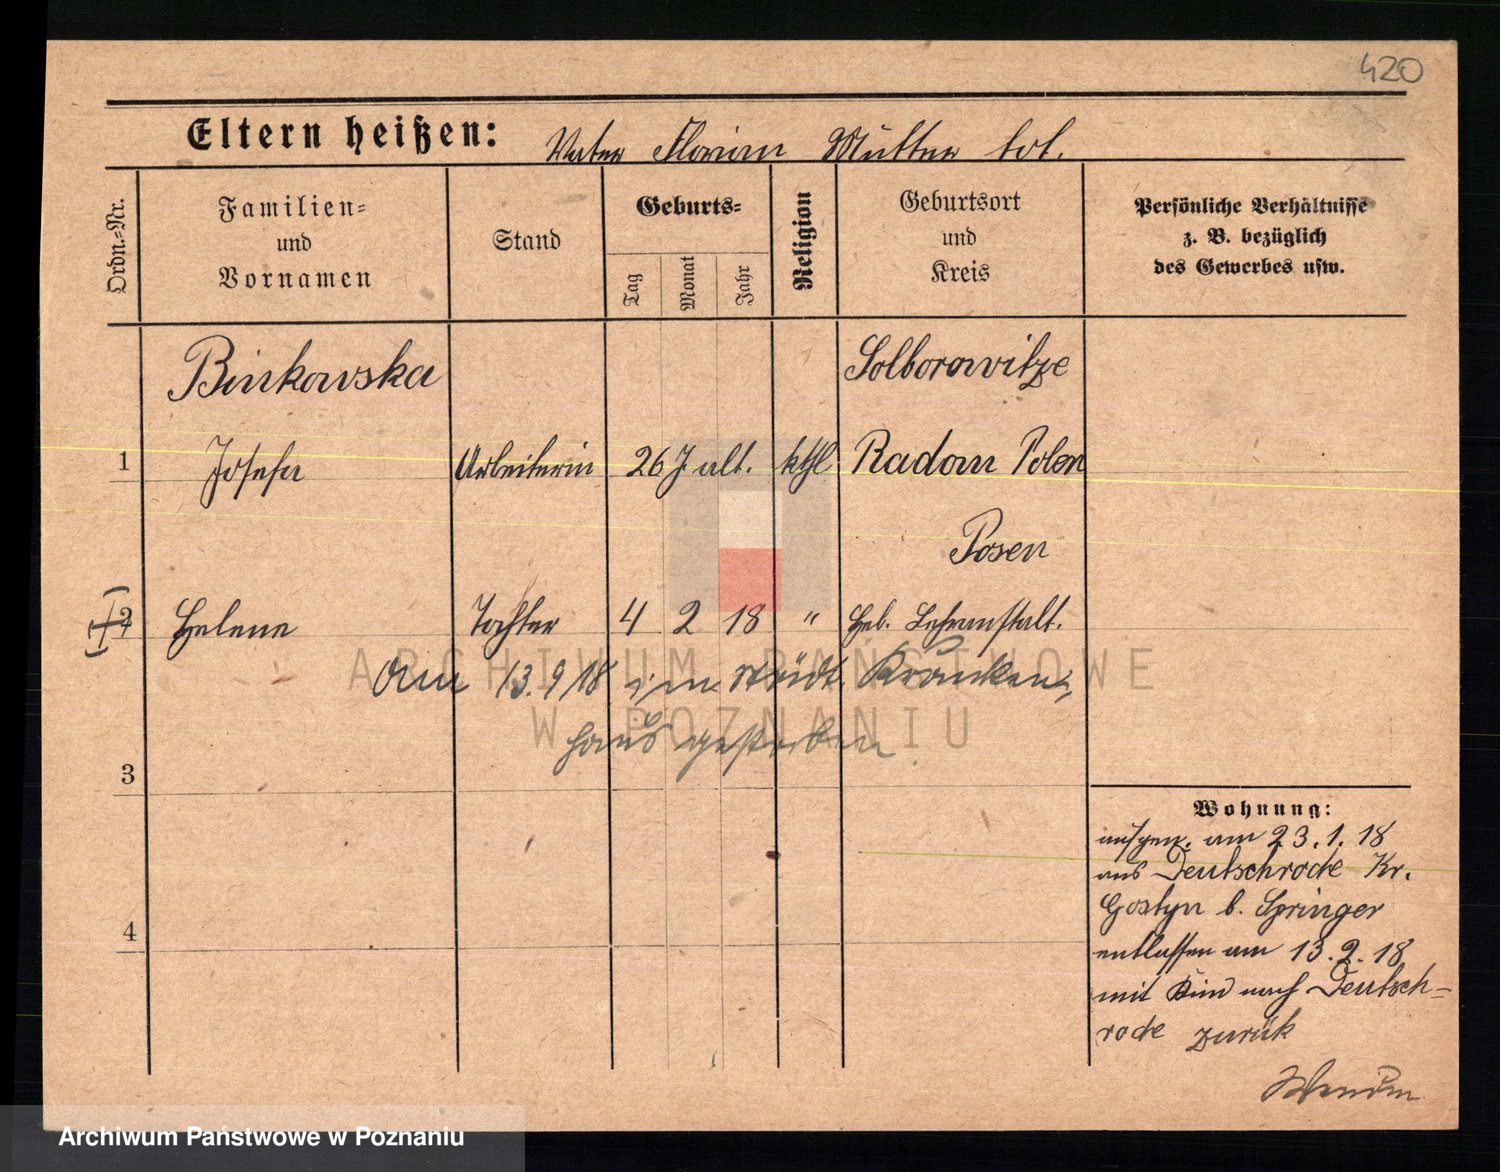 420
Eltern heißen: Vater Florian Mutter tot.
Ordn.=Nr.
Familien=
und
Vornamen
Stand
Geburts=
Tag
Monat
Jahr
Religion
Geburtsort
und
Kreis
Persönliche Verhältnisse
z. B. bezüglich
des Gewerbes usw.
Binkowska Solborowitze
1 Josefa Arbeiterin 26 J. alt. kthl Radom Polen
Posen
2 Helene Tochter 4 2 18 " Heb. Lehranstalt.
Am 13.9 18 im städt. Kranken=
haus gestorben
3
4
Wohnung:
aufgen. am 23.1.18
aus Deutschrode Kr.
Gostyn b. Springer
entlassen am 13.2.18
mit Kind nach Deutsch=
rode zurük
ARCHIWUM PAŃSTWOWE
W POZNANIU
Archiwum Państwowe w Poznaniu